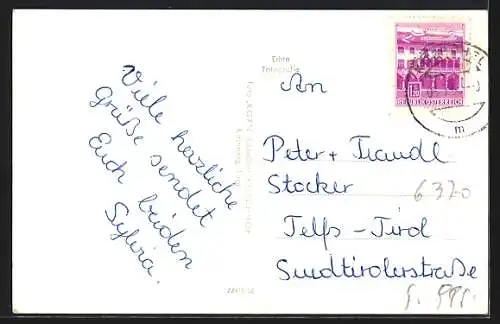 Viele herzliche
Grüße sendet
Euch beiden
Sylvia.
Echte
Fotografie
An
Peter + Traudl
Stocker
6370
Telfs-Tirol
Suedtirolerstraße
REPUBLIK ÖSTERREICH
m